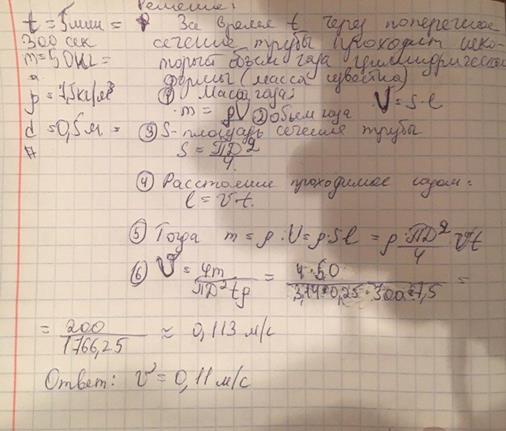 Решение:
t = 5 мин = За время t через поперечное
300 сек сечение трубы проходит неко-
m = 50 кг = торый объем газа цилиндрической
формы (масса известна)
ρ = 7,5 кг/м³ ① Масса газа:
m = ρV ② Объем газа V = S·l
d = 0,5 м = ③ S - площадь сечение трубы
S = ПD²/4
④ Расстояние проходимое газом:
l = vt.
⑤ Тогда m = ρ·V = ρ·Sl = ρ·ПD²/4 vt
⑥ v = 4m/ПD²tρ = 4·50/3,14·0,25·300·7,5 =
= 200/1766,25 ≈ 0,113 м/с
Ответ: v = 0,11 м/с